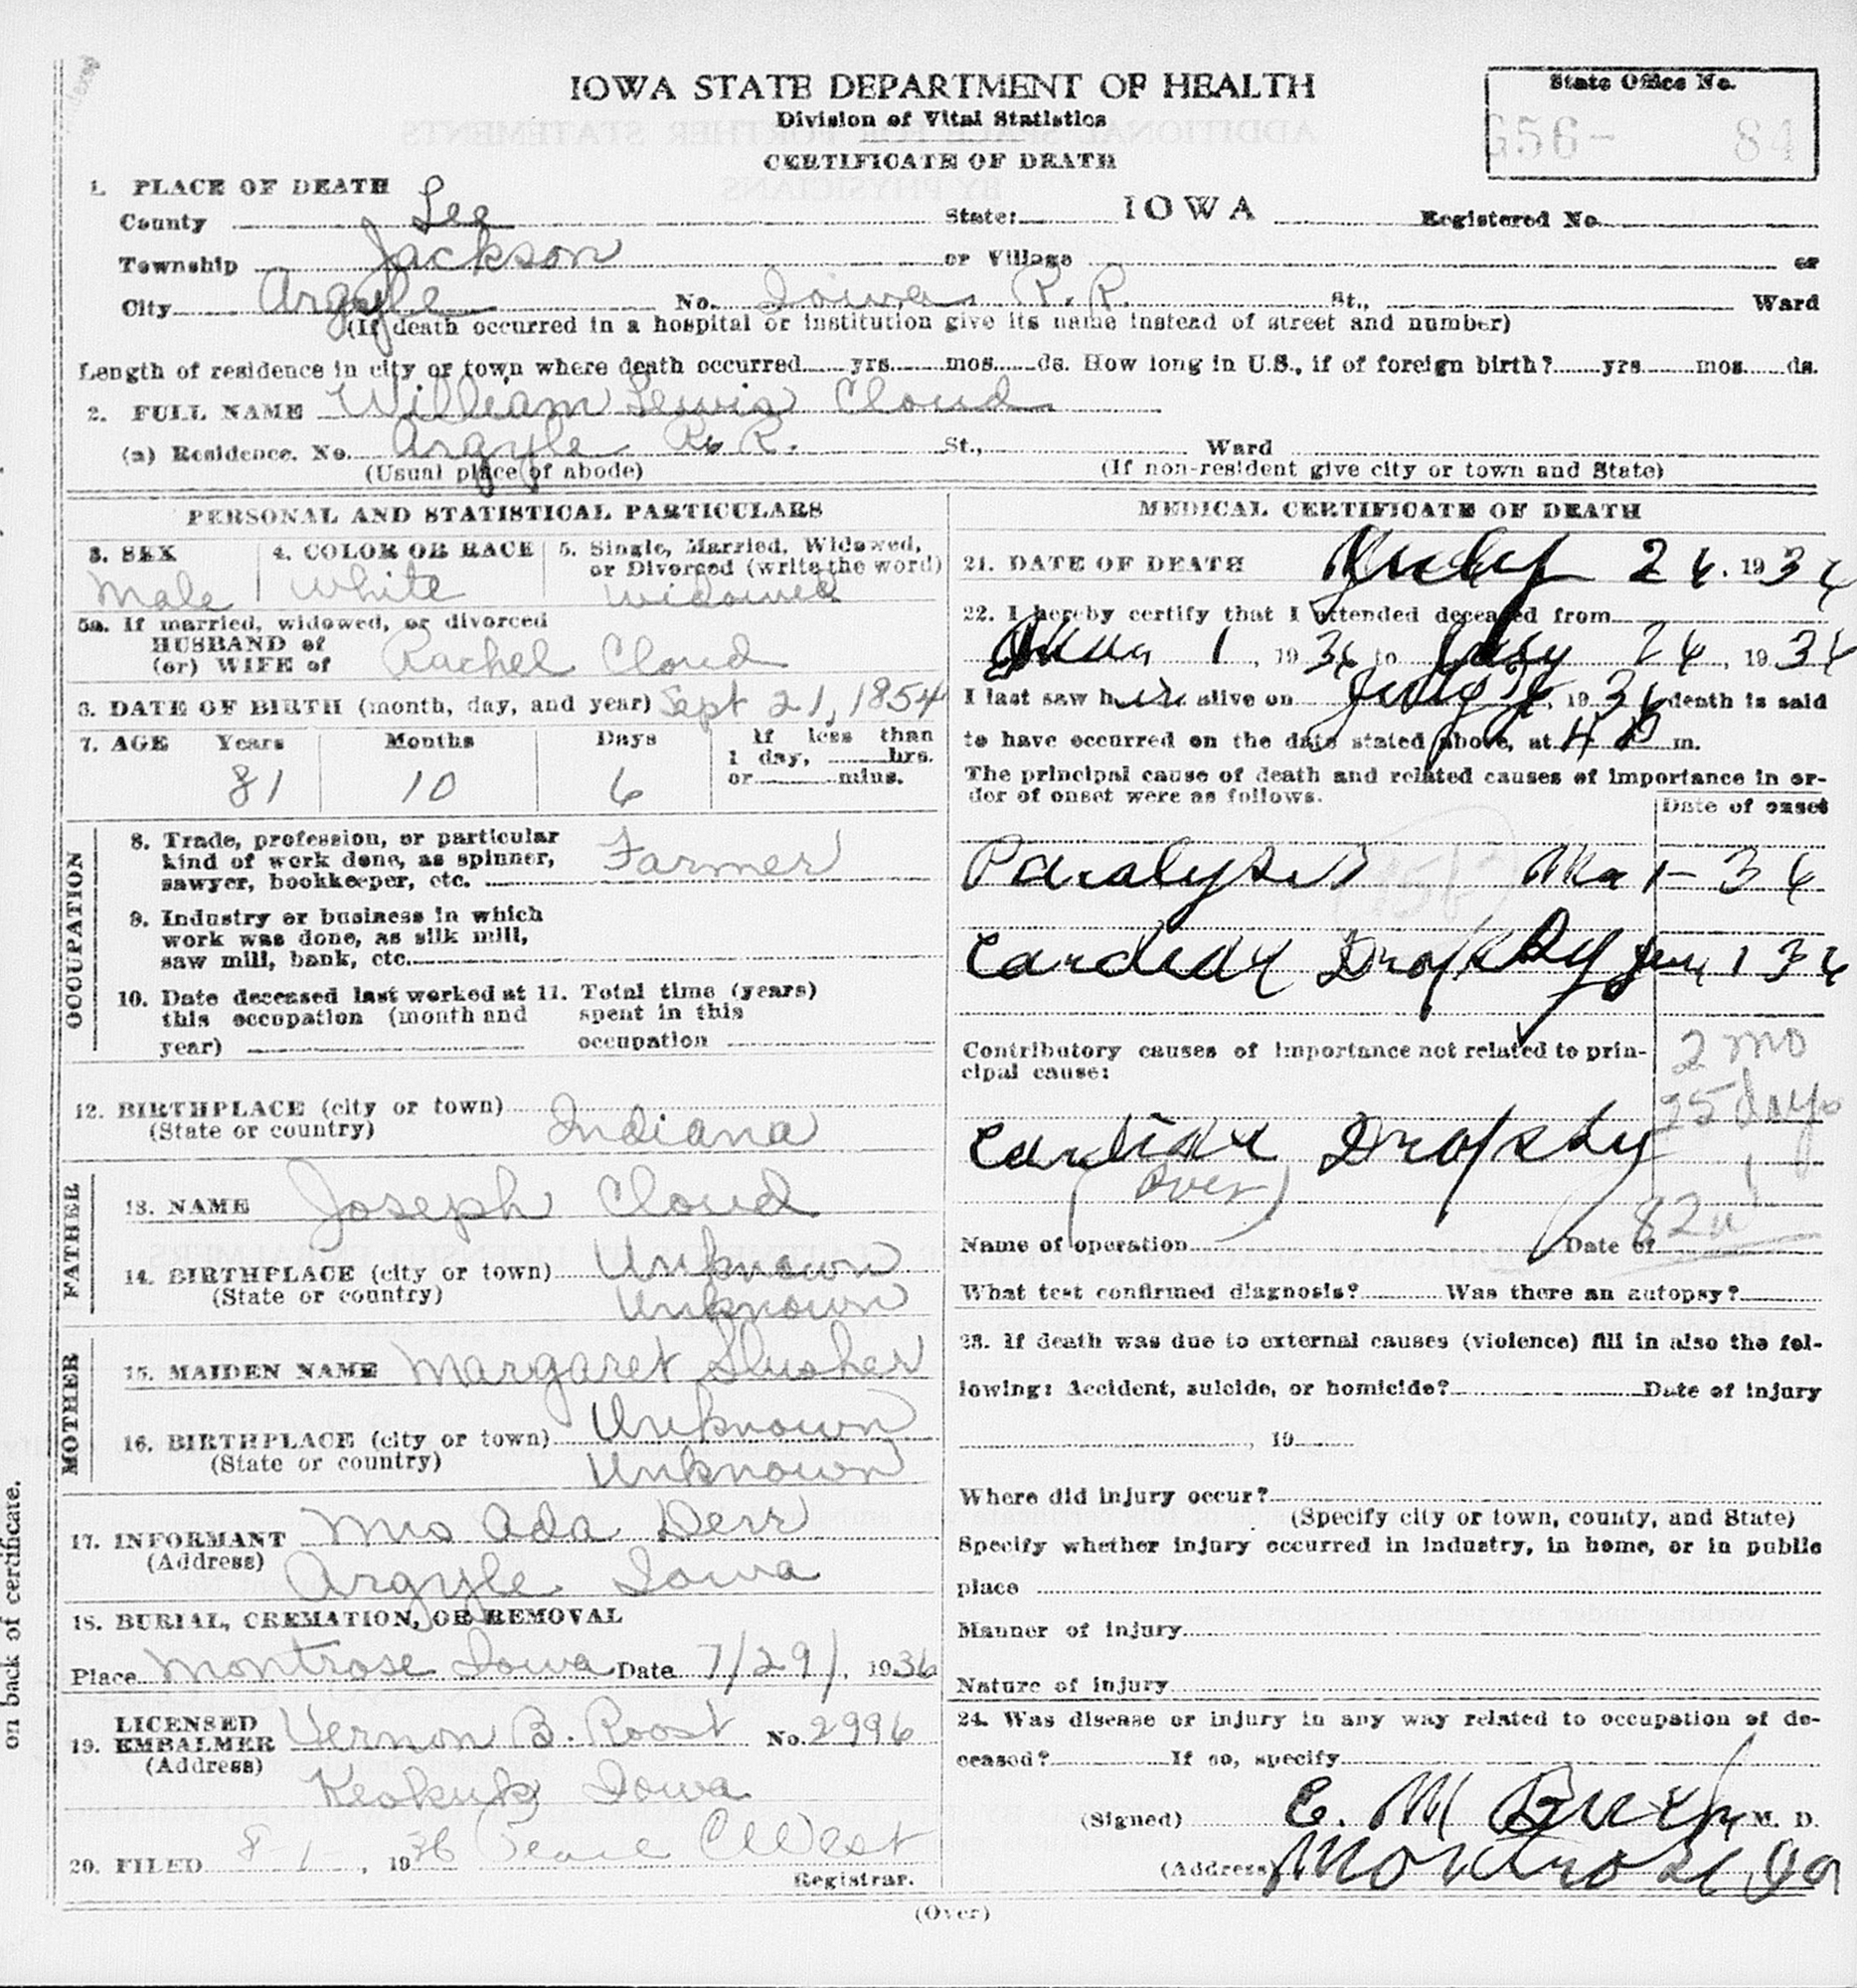 Indexed
IOWA STATE DEPARTMENT OF HEALTH
Division of Vital Statistics
CERTIFICATE OF DEATH
State Office No.
G56- 84
1. PLACE OF DEATH
County Lee State: IOWA Registered No.
Township Jackson or Village or
City Argyle No. Iowa R.R. St., Ward
(If death occurred in a hospital or institution give its name instead of street and number)
Length of residence in city or town where death occurred yrs mos ds. How long in U.S., if of foreign birth? yrs mos ds.
2. FULL NAME William Lewis Cloud
(a) Residence. No. Argyle R.R. St., Ward
(Usual place of abode) (If non-resident give city or town and State)
PERSONAL AND STATISTICAL PARTICULARS
3. SEX 4. COLOR OR RACE 5. Single, Married, Widowed,
or Divorced (write the word)
Male White Widowed
5a. If married, widowed, or divorced
HUSBAND of
(or) WIFE of Rachel Cloud
6. DATE OF BIRTH (month, day, and year) Sept 21, 1854
7. AGE Years Months Days If less than
1 day, hrs.
or mins.
81 10 6
OCCUPATION
8. Trade, profession, or particular
kind of work done, as spinner,
sawyer, bookkeeper, etc. Farmer
9. Industry or business in which
work was done, as silk mill,
saw mill, bank, etc.
10. Date deceased last worked at
this occupation (month and
year)
11. Total time (years)
spent in this
occupation
12. BIRTHPLACE (city or town)
(State or country) Indiana
FATHER
13. NAME Joseph Cloud
14. BIRTHPLACE (city or town) Unknown
(State or country) Unknown
MOTHER
15. MAIDEN NAME Margaret Slusher
16. BIRTHPLACE (city or town) Unknown
(State or country) Unknown
17. INFORMANT Mrs Ada Derr
(Address) Argyle Iowa
18. BURIAL, CREMATION, OR REMOVAL
Place Montrose Iowa Date 7/29/, 1936
19. LICENSED
EMBALMER Vernon B. Roost No. 2996
(Address)
Keokuk Iowa
20. FILED 8-1-, 1936 West
Registrar.
MEDICAL CERTIFICATE OF DEATH
21. DATE OF DEATH July 26, 1936
22. I hereby certify that I attended deceased from
1, 1936 to July 26, 1936
I last saw h alive on July, 1936 death is said
to have occurred on the date stated above, at P m.
The principal cause of death and related causes of importance in or-
der of onset were as follows.
Date of onset
Paralysis 1- 36
Cardiac Dropsy 1 36
Contributory causes of importance not related to prin-
cipal cause:
2 mo
25 days
Cardiac Dropsy
(Over)
82a
Name of operation Date of
What test confirmed diagnosis? Was there an autopsy?
23. If death was due to external causes (violence) fill in also the fol-
lowing: Accident, suicide, or homicide? Date of injury
, 19
Where did injury occur?
(Specify city or town, county, and State)
Specify whether injury occurred in industry, in home, or in public
place
Manner of injury
Nature of injury
24. Was disease or injury in any way related to occupation of de-
ceased? If so, specify
(Signed) E. M. M. D.
(Address) Montrose Ia
(Over)
on back of certificate.